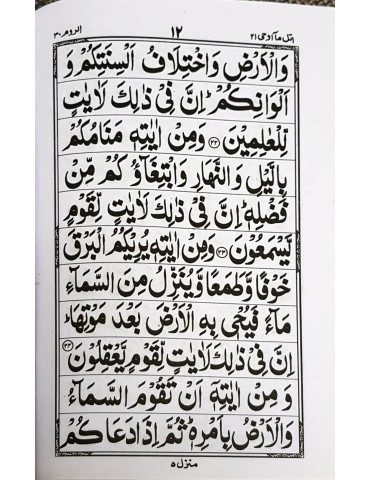 اتل ما اوحی ۲۱ ۱۲ الروم ۳۰
وَالْاَرْضِ وَاخْتِلَافُ اَلْسِنَتِكُمْ وَ
اَلْوَانِكُمْ ؕ اِنَّ فِیْ ذٰلِكَ لَاٰیٰتٍ
لِّلْعٰلِمِیْنَ ﴿۲۲﴾ وَمِنْ اٰیٰتِهٖ مَنَامُكُمْ
بِالَّیْلِ وَالنَّهَارِ وَابْتِغَآؤُكُمْ مِّنْ
فَضْلِهٖ ؕ اِنَّ فِیْ ذٰلِكَ لَاٰیٰتٍ لِّقَوْمٍ
یَّسْمَعُوْنَ ﴿۲۳﴾ وَمِنْ اٰیٰتِهٖ یُرِیْكُمُ الْبَرْقَ
خَوْفًا وَّطَمَعًا وَّیُنَزِّلُ مِنَ السَّمَآءِ
مَآءً فَیُحْیٖ بِهِ الْاَرْضَ بَعْدَ مَوْتِهَا ؕ
اِنَّ فِیْ ذٰلِكَ لَاٰیٰتٍ لِّقَوْمٍ یَّعْقِلُوْنَ ﴿۲۴﴾
وَ مِنْ اٰیٰتِهٖۤ اَنْ تَقُوْمَ السَّمَآءُ
وَالْاَرْضُ بِاَمْرِهٖ ؕ ثُمَّ اِذَا دَعَاكُمْ
منزل ۵